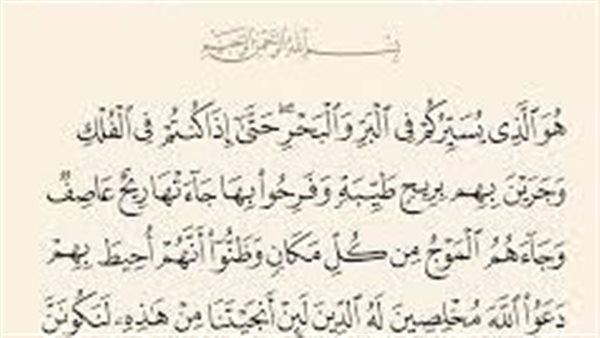 بسم الله الرحمن الرحيم
هُوَ ٱلَّذِى يُسَيِّرُكُمْ فِى ٱلْبَرِّ وَٱلْبَحْرِ ۖ حَتَّىٰٓ إِذَا كُنتُمْ فِى ٱلْفُلْكِ
وَجَرَيْنَ بِهِم بِرِيحٍ طَيِّبَةٍ وَفَرِحُوا۟ بِهَا جَآءَتْهَا رِيحٌ عَاصِفٌ
وَجَآءَهُمُ ٱلْمَوْجُ مِن كُلِّ مَكَانٍ وَظَنُّوٓا۟ أَنَّهُمْ أُحِيطَ بِهِمْ
دَعَوُا۟ ٱللَّهَ مُخْلِصِينَ لَهُ ٱلدِّينَ لَئِنْ أَنجَيْتَنَا مِنْ هَٰذِهِۦ لَنَكُونَنَّ